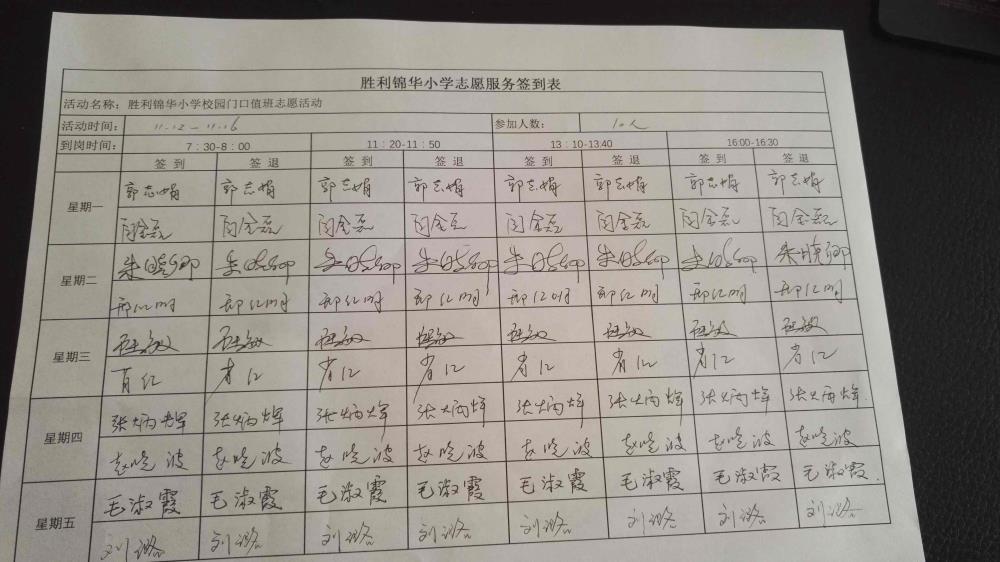 胜利锦华小学志愿服务签到表
活动名称：胜利锦华小学校园门口值班志愿活动
活动时间： 11.12 — 11.16 参加人数： 10人
到岗时间： 7：30-8：00 11：20-11：50 13：10-13:40 16:00-16:30
签 到 签 退 签 到 签 退 签 到 签 退 签 到 签 退
星期一 郭志娟 郭志娟 郭志娟 郭志娟 郭志娟 郭志娟 郭志娟 郭志娟
闫金磊 闫金磊 闫金磊 闫金磊 闫金磊 闫金磊 闫金磊 闫金磊
星期二 朱晓卿 朱晓卿 朱晓卿 朱晓卿 朱晓卿 朱晓卿 朱晓卿 朱晓卿
邢红明 邢红明 邢红明 邢红明 邢红明 邢红明 邢红明 邢红明
星期三
肖红 肖红 肖红 肖红 肖红 肖红 肖红 肖红
星期四 张炳辉 张炳辉 张炳辉 张炳辉 张炳辉 张炳辉 张炳辉 张炳辉
赵晓波 赵晓波 赵晓波 赵晓波 赵晓波 赵晓波 赵晓波 赵晓波
星期五 毛淑霞 毛淑霞 毛淑霞 毛淑霞 毛淑霞 毛淑霞 毛淑霞 毛淑霞
刘璐 刘璐 刘璐 刘璐 刘璐 刘璐 刘璐 刘璐